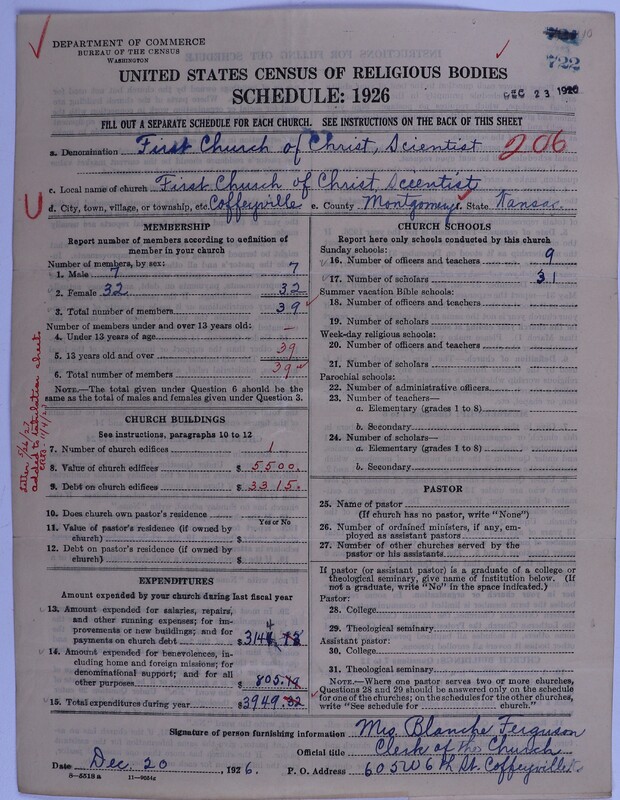 DEPARTMENT OF COMMERCE
BUREAU OF THE CENSUS
WASHINGTON
722
DEC 23 1926
UNITED STATES CENSUS OF RELIGIOUS BODIES
SCHEDULE: 1926
FILL OUT A SEPARATE SCHEDULE FOR EACH CHURCH. SEE INSTRUCTIONS ON THE BACK OF THIS SHEET
a. Denomination First Church of Christ, Scientist 206
c. Local name of church First Church of Christ, Scientist
d. City, town, village, or township, etc. Coffeyville e. County Montgomery f. State Kansas
MEMBERSHIP
Report number of members according to definition of
member in your church
Number of members, by sex:
1. Male 7 7
2. Female 32 32
3. Total number of members 39
Number of members under and over 13 years old:
4. Under 13 years of age —
5. 13 years old and over 39
6. Total number of members 39
NOTE.—The total given under Question 6 should be the
same as the total of males and females given under Question 3.
CHURCH BUILDINGS
See instructions, paragraphs 10 to 12
7. Number of church edifices 1
8. Value of church edifices $ 5500.
9. Debt on church edifices $ 3315.
10. Does church own pastor's residence?
Yes or No
11. Value of pastor's residence (if owned by
church) $
12. Debt on pastor's residence (if owned by
church) $
EXPENDITURES
Amount expended by your church during last fiscal year
13. Amount expended for salaries, repairs,
and other running expenses; for im-
provements or new buildings; and for
payments on church debt $ 3144.
14. Amount expended for benevolences, in-
cluding home and foreign missions; for
denominational support; and for all
other purposes $ 805.
15. Total expenditures during year $ 3949.
CHURCH SCHOOLS
Report here only schools conducted by this church
Sunday schools:
16. Number of officers and teachers 9
17. Number of scholars 31
Summer vacation Bible schools:
18. Number of officers and teachers
19. Number of scholars
Week-day religious schools:
20. Number of officers and teachers
21. Number of scholars
Parochial schools:
22. Number of administrative officers
23. Number of teachers—
a. Elementary (grades 1 to 8)
b. Secondary
24. Number of scholars—
a. Elementary (grades 1 to 8)
b. Secondary
PASTOR
25. Name of pastor
(If church has no pastor, write "None")
26. Number of ordained ministers, if any, em-
ployed as assistant pastors
27. Number of other churches served by the
pastor or his assistants
If pastor (or assistant pastor) is a graduate of a college or
theological seminary, give name of institution below. (If
not a graduate, write "No" in the space indicated.)
Pastor:
28. College
29. Theological seminary
Assistant pastor:
30. College
31. Theological seminary
NOTE.—Where one pastor serves two or more churches,
Questions 28 and 29 should be answered only on the schedule
for one of the churches; on the schedules for the other churches,
write "See schedule for church."
Signature of person furnishing information Mrs Blanche Ferguson
Official title Clerk of the Church
Date Dec. 20, 1926. P. O. Address 605 W 6th St. Coffeyville
8—5518 a